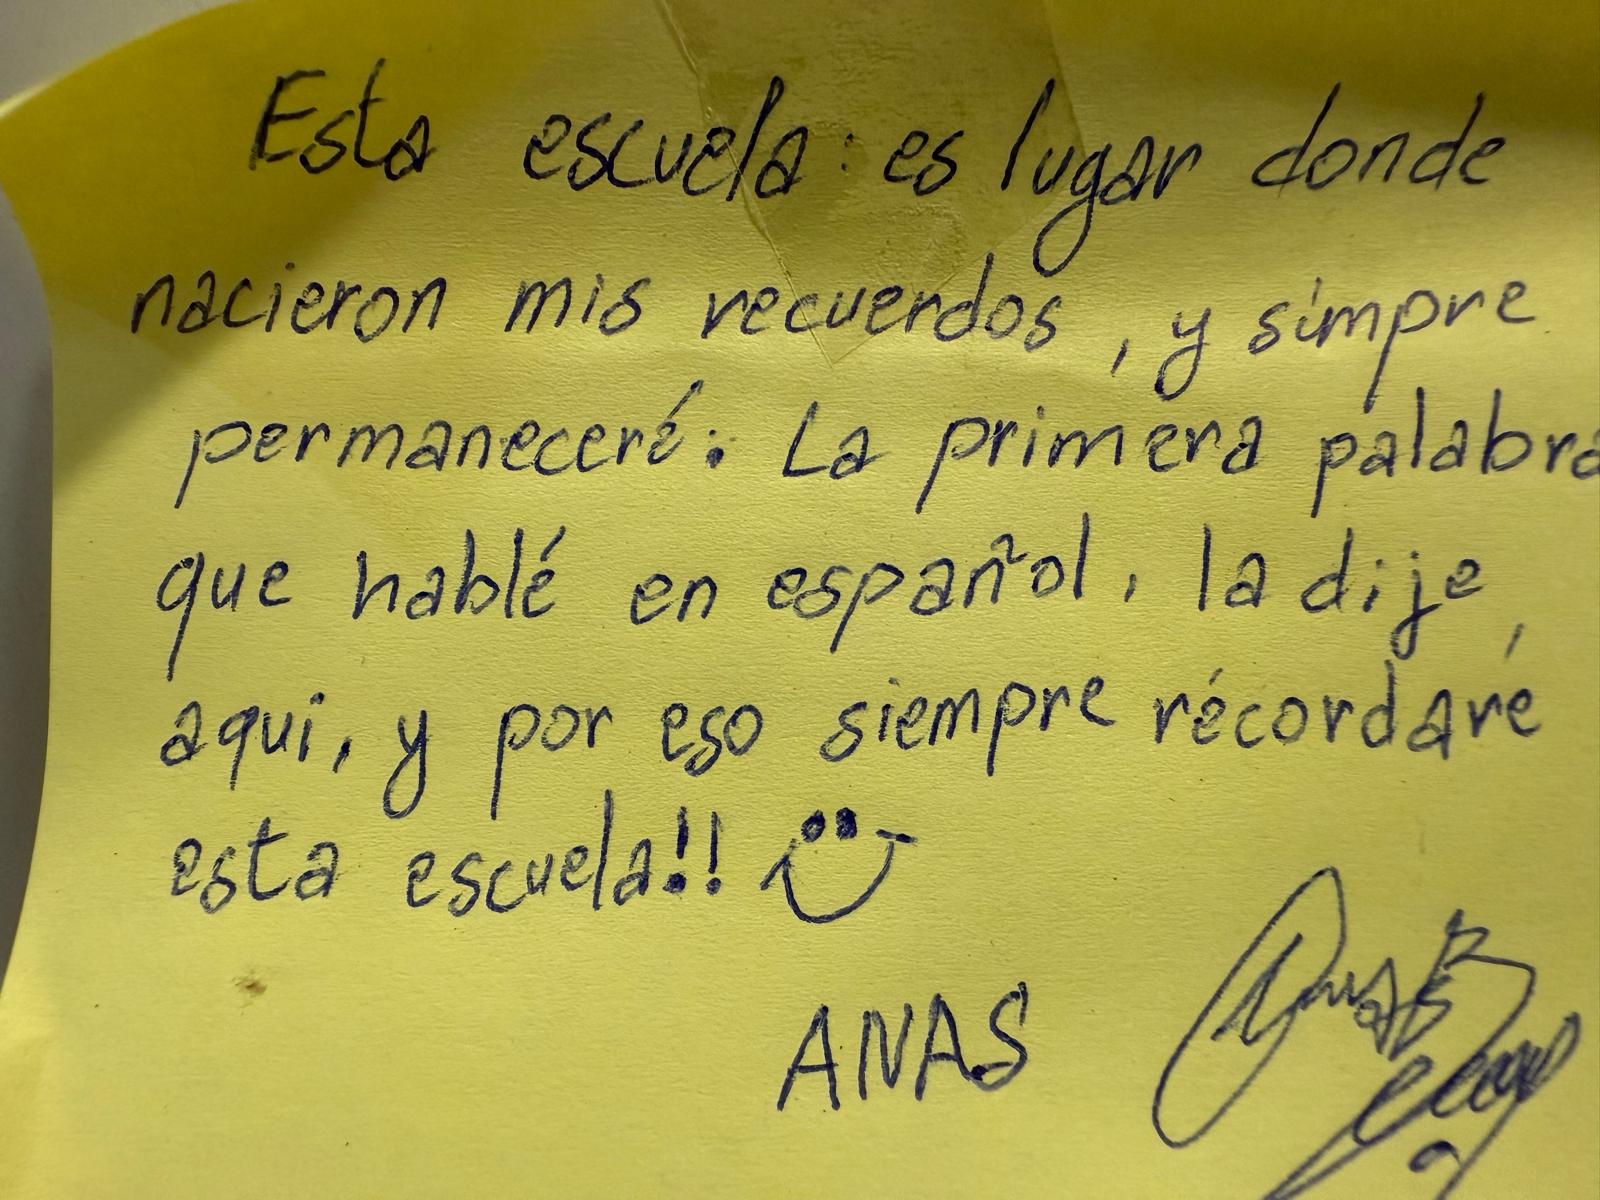 Esta escuela: es lugar donde
nacieron mis recuerdos, y simpre
permaneceré: La primera palabra
que hablé en español, la dije,
aqui, y por eso siempre récordaré
esta escuela!!
ANAS